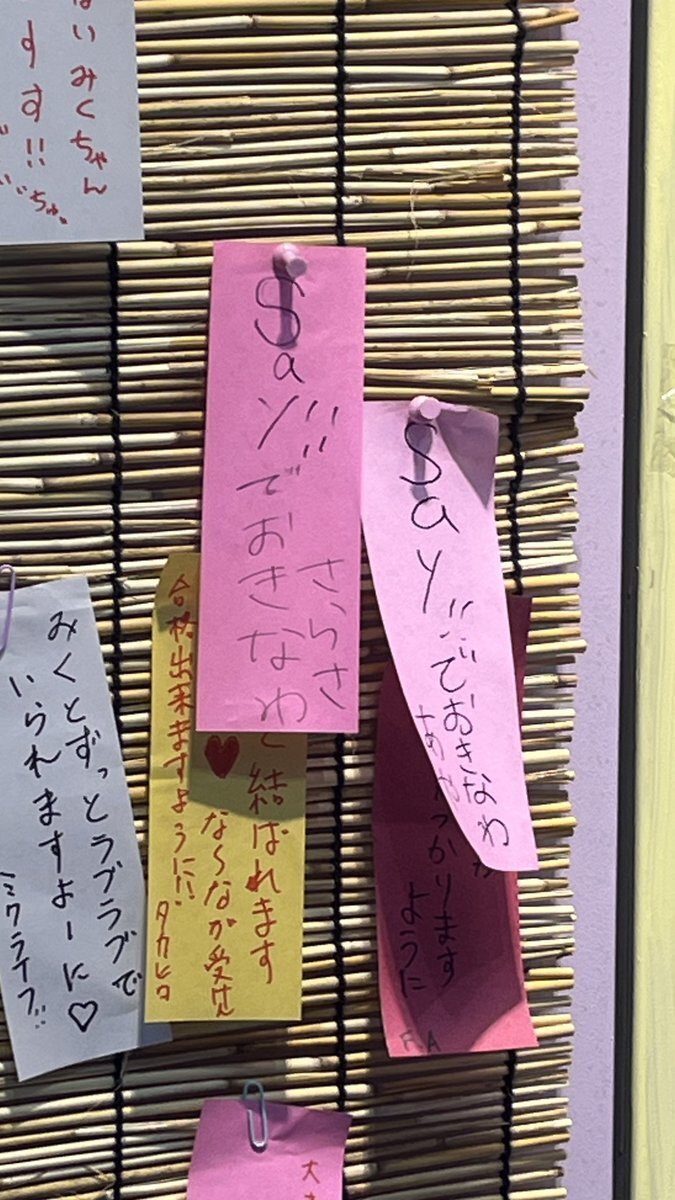 いみくちゃん
す す!!
Say!!でおきなわ
さらさ
Say!!でおきなわ
結ばれます
ならなが受けん
合格出来ますように!!
タカヒロ
かります
ように
みくとずっとラブラブで
いられますよーに♡
ミクライブ!!
大